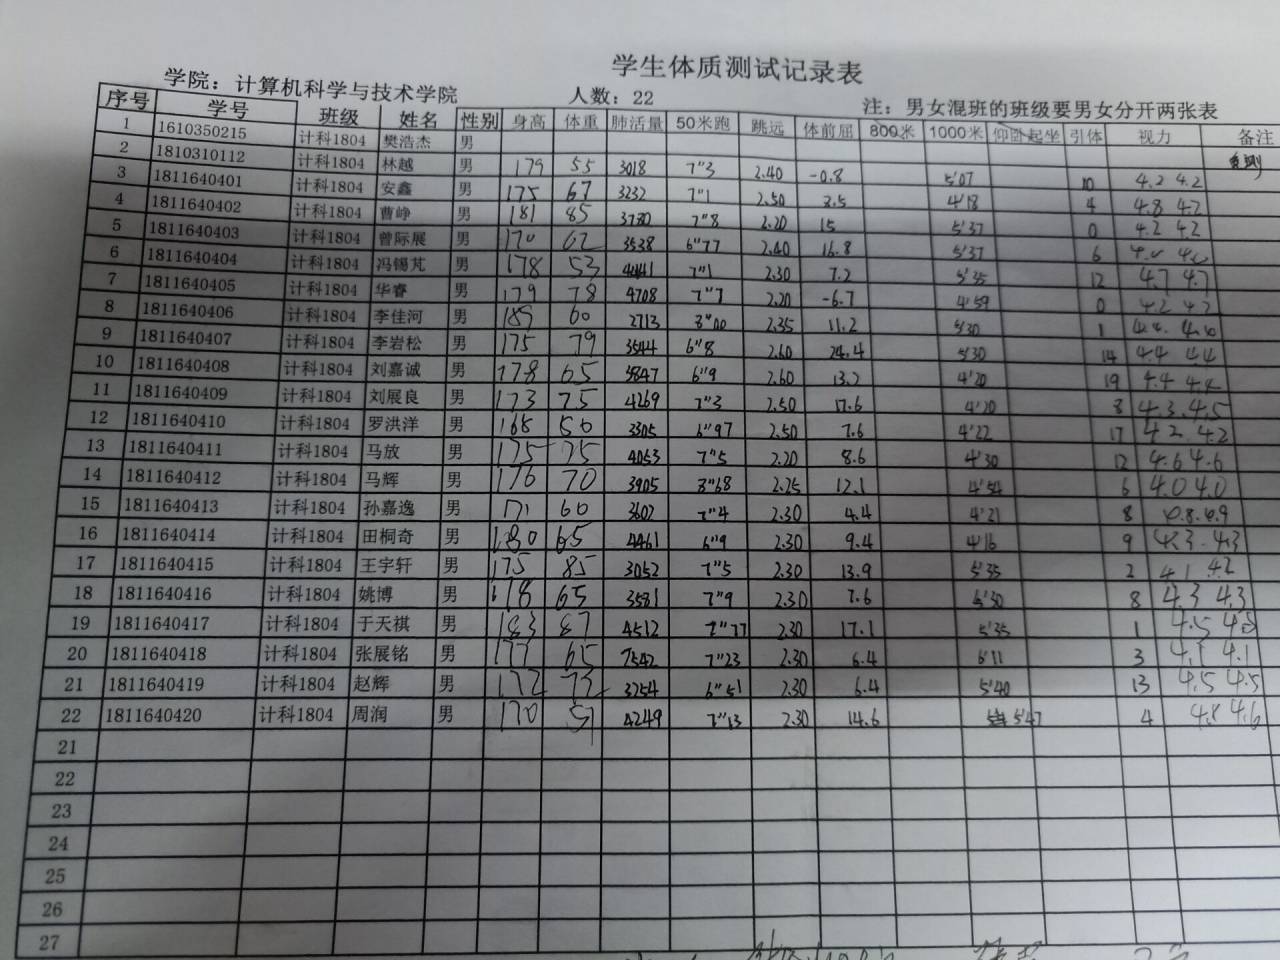 学生体质测试记录表
学院：计算机科学与技术学院 人数：22 注：男女混班的班级要男女分开两张表
序号 学号 班级 姓名 性别 身高 体重 肺活量 50米跑 跳远 体前屈 800米 1000米 仰卧起坐 引体 视力 备注
1 1610350215 计科1804 樊浩杰 男
2 1810310112 计科1804 林越 男 179 55 3018 7"3 2.40 -0.8 5'07 10 4.2 4.2
3 1811640401 计科1804 安鑫 男 175 67 3232 7"1 2.50 3.5 4'18 4 4.8 4.2
4 1811640402 计科1804 曹峥 男 181 85 7"8 2.20 15 5'37 0 4.2 4.2
5 1811640403 计科1804 曾际展 男 170 62 3538 6"77 2.40 16.8 5'37 6
6 1811640404 计科1804 冯锡芃 男 178 53 4441 7"1 2.30 7.2 5'35 12 4.7 4.7
7 1811640405 计科1804 华睿 男 179 78 4708 7"7 2.20 -6.7 4'59 0 4.2 4.2
8 1811640406 计科1804 李佳河 男 189 60 2713 8"00 2.35 11.2 5'30 1
9 1811640407 计科1804 李岩松 男 175 79 3544 6"8 2.60 24.4 5'30 14 4.4 4.4
10 1811640408 计科1804 刘嘉诚 男 178 65 3847 6"9 2.60 13.2 4'20 19 4.4 4.4
11 1811640409 计科1804 刘展良 男 173 75 4269 7"3 2.50 17.6 4'20 8 4.3 4.5
12 1811640410 计科1804 罗洪洋 男 168 50 3305 6"97 2.50 7.6 4'22 17 4.2 4.2
13 1811640411 计科1804 马放 男 175 75 4053 7"5 2.20 8.6 4'30 12 4.6 4.6
14 1811640412 计科1804 马辉 男 176 70 3905 8"68 2.25 12.1 4'54 6 4.0 4.0
15 1811640413 计科1804 孙嘉逸 男 171 60 3602 7"4 2.30 4.4 4'21 8 4.8 4.9
16 1811640414 计科1804 田桐奇 男 180 65 4461 6"9 2.30 9.4 4'16 9 4.3 4.3
17 1811640415 计科1804 王宇轩 男 175 85 3052 7"5 2.30 13.9 5'35 2 4.1 4.2
18 1811640416 计科1804 姚博 男 65 3581 7"9 2.30 7.6 8 4.3 4.3
19 1811640417 计科1804 于天祺 男 183 87 4512 7"77 2.30 17.1 5'35 1 4.5
20 1811640418 计科1804 张展铭 男 177 65 7542 7"23 2.30 6.4 6'11 3 4.1 4.1
21 1811640419 计科1804 赵辉 男 172 72 3254 6"51 2.30 6.4 5'40 13 4.5 4.5
22 1811640420 计科1804 周润 男 170 51 4249 7"13 2.30 14.6 5'47 4 4.8 4.6
21
22
23
24
25
26
27